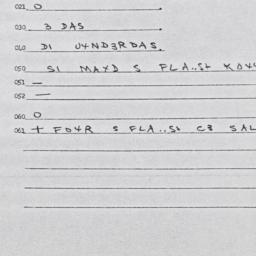 021. O
030. 3 DAS
040. DI U4ND3RDAS.
050. S1 MAXD S FLA..St
051 —
052 —
060. O
061 + FO4R S FLA..St C3 SAL